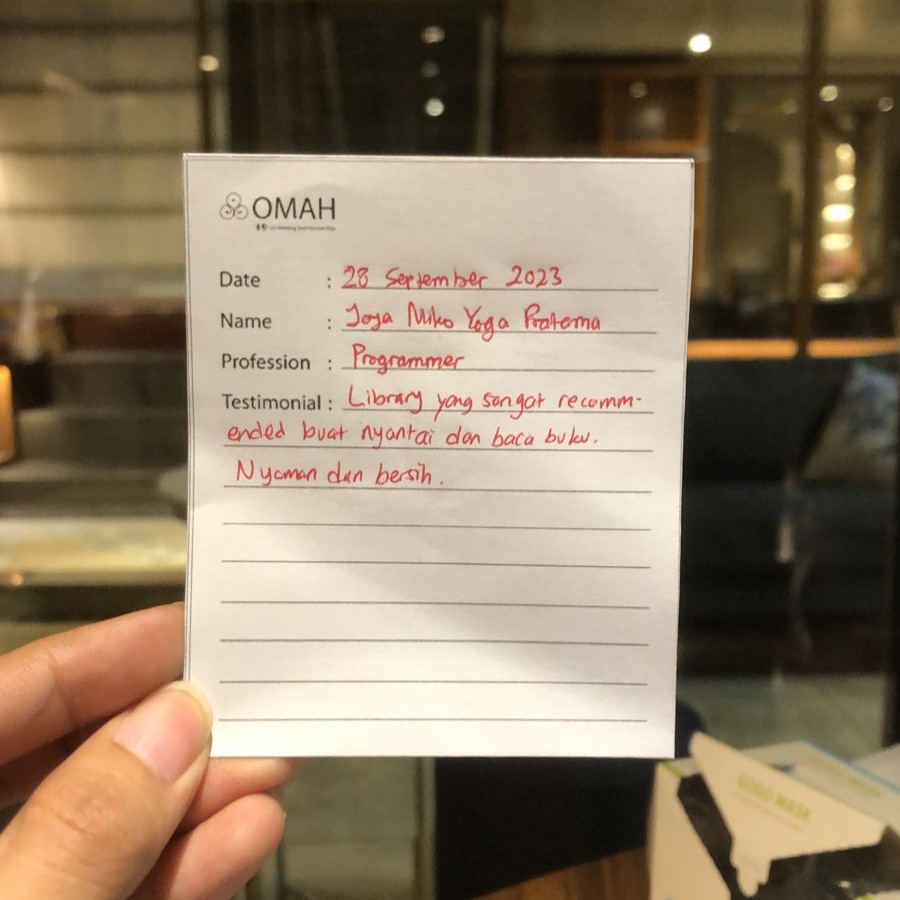 OMAH
Date : 28 September 2023
Name : Joya Niko Yoga Pratama
Profession : Programmer
Testimonial : Library yang sangat recomm-
ended buat nyantai dan baca buku.
Nyaman dan bersih.
GOGO MASK